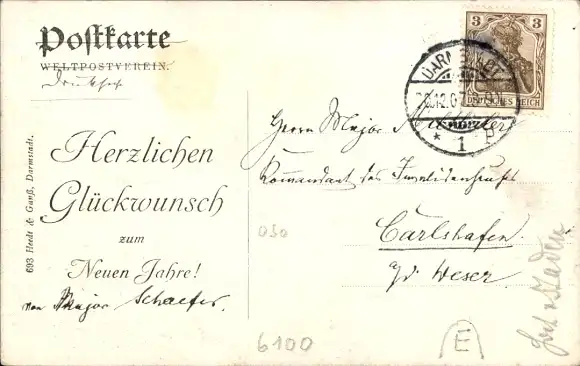 Postkarte
WELTPOSTVEREIN.
Drucksache
3 3
DEUTSCHES REICH
DARMSTADT
* 1 P
Herzlichen
Glückwunsch
zum
Neuen Jahre!
von Major Schaefer.
693 Heede & Ganß, Darmstadt.
Herrn Major
Kommandant des Invalidenhauses
Carlshafen
a/d Weser.
030
6100
E